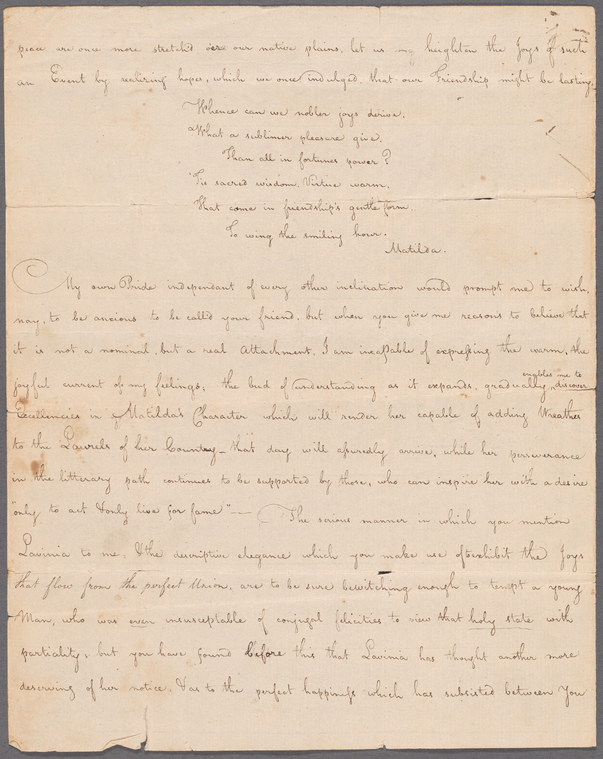 peace are once more stretch'd o'er our native plains, let us heighten the Joys of such
an Event by realizing hopes, which we once indulged that our Friendship might be lasting.
Whence can we nobler joys derive.
What a sublimer pleasure give.
Than all in fortunes power?
'Tis sacred wisdom. Virtue warm.
That come in friendship's gentle form.
To wing the smiling hour.
Matilda.
My own Pride independant of every other inclination would prompt me to wish,
nay, to be ancious to be call'd your friend, but when you give me reasons to believe that
it is not a nominal, but a real Attachment. I am incapable of expressing the warm, the
joyful current of my feelings, the bud of understanding as it expands, gradually enables me to discover
Excellencies in my Matilda's Character which will render her capable of adding Wreathes
to the Laurels of her Country - that day will assuredly arrive, while her perseverance
in the litterary path continues to be supported by those, who can inspire her with a desire
"only to act & only live for fame" — The serious manner in which you mention
Lavinia to me, & the descriptive elegance which you make use of to exhibit the Joys
that flow from the perfect Union, are to be sure bewitching enough to tempt a young
Man, who was even unsusceptable of conjugal felicities to view that holy state with
partiality, but you have found before this that Lavinia has thought another more
deserving of her notice. & as to the perfect happiness which has subsisted between You